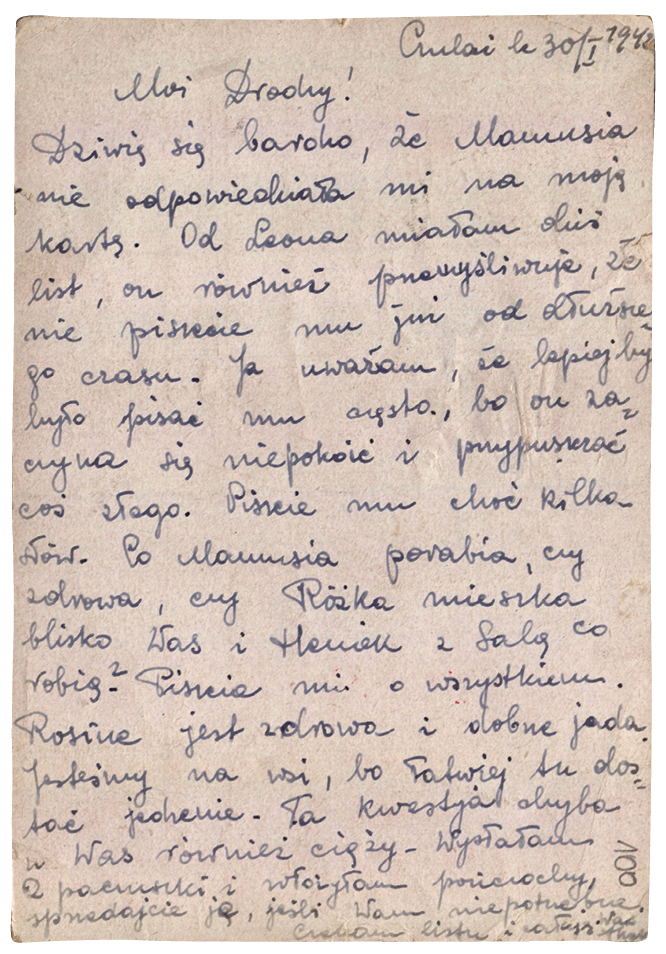 Culai le 30/I 1942
Moi Drodzy!
Dziwię się bardzo, że Mamusia
nie odpowiedziała mi na moją
kartę. Od Leona miałam dziś
list, on również przemyśliwuje, że
nie piszecie mu już od dłuższe
go czasu. Ja uważam, że lepiej by
było pisać mu często, bo on za=
czyna się niepokoić i przypuszczać
coś złego. Piszcie mu choć kilka
słów. Co Mamusia porabia, czy
zdrowa, czy Różka mieszka
blisko Was i Heniek z Salą co
robią? Piszcie mi o wszystkiem.
Rosine jest zdrowa i dobrze jada.
Jesteśmy na wsi, bo łatwiej tu dos=
tać jedzenie. Ta kwestja chyba
u Was również ciąży. Wysłałam
2 paczuszki i włożyłam pończochy,
sprzedajcie ją, jeśli Wam niepotrzebne.
Czekam listu i całuję Was
100